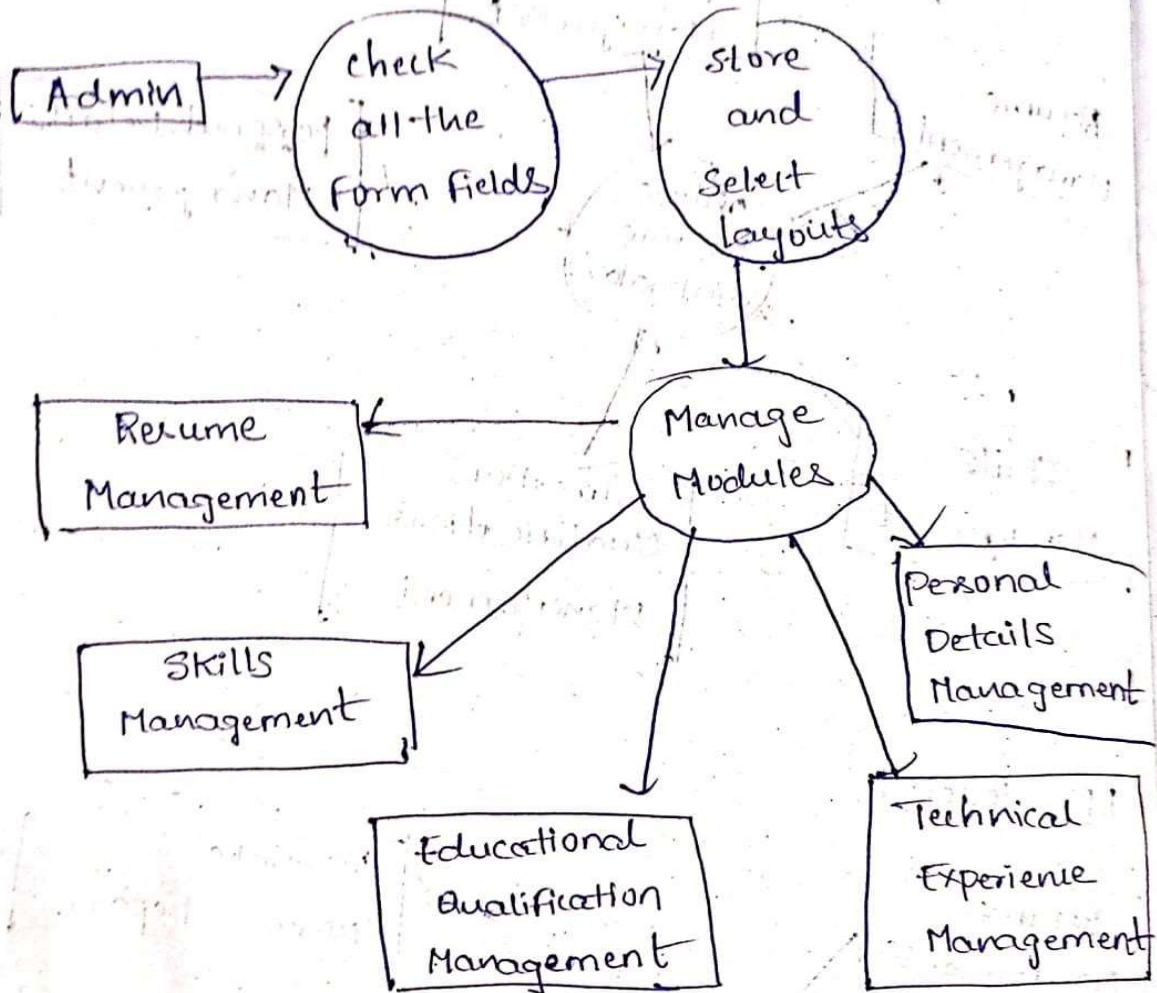 Admin
check
all the
Form Fields
Store
and
Select
Layouts
Manage
Modules
Resume
Management
Personal
Details
Management
Skills
Management
Educational
Qualification
Management
Technical
Experience
Management